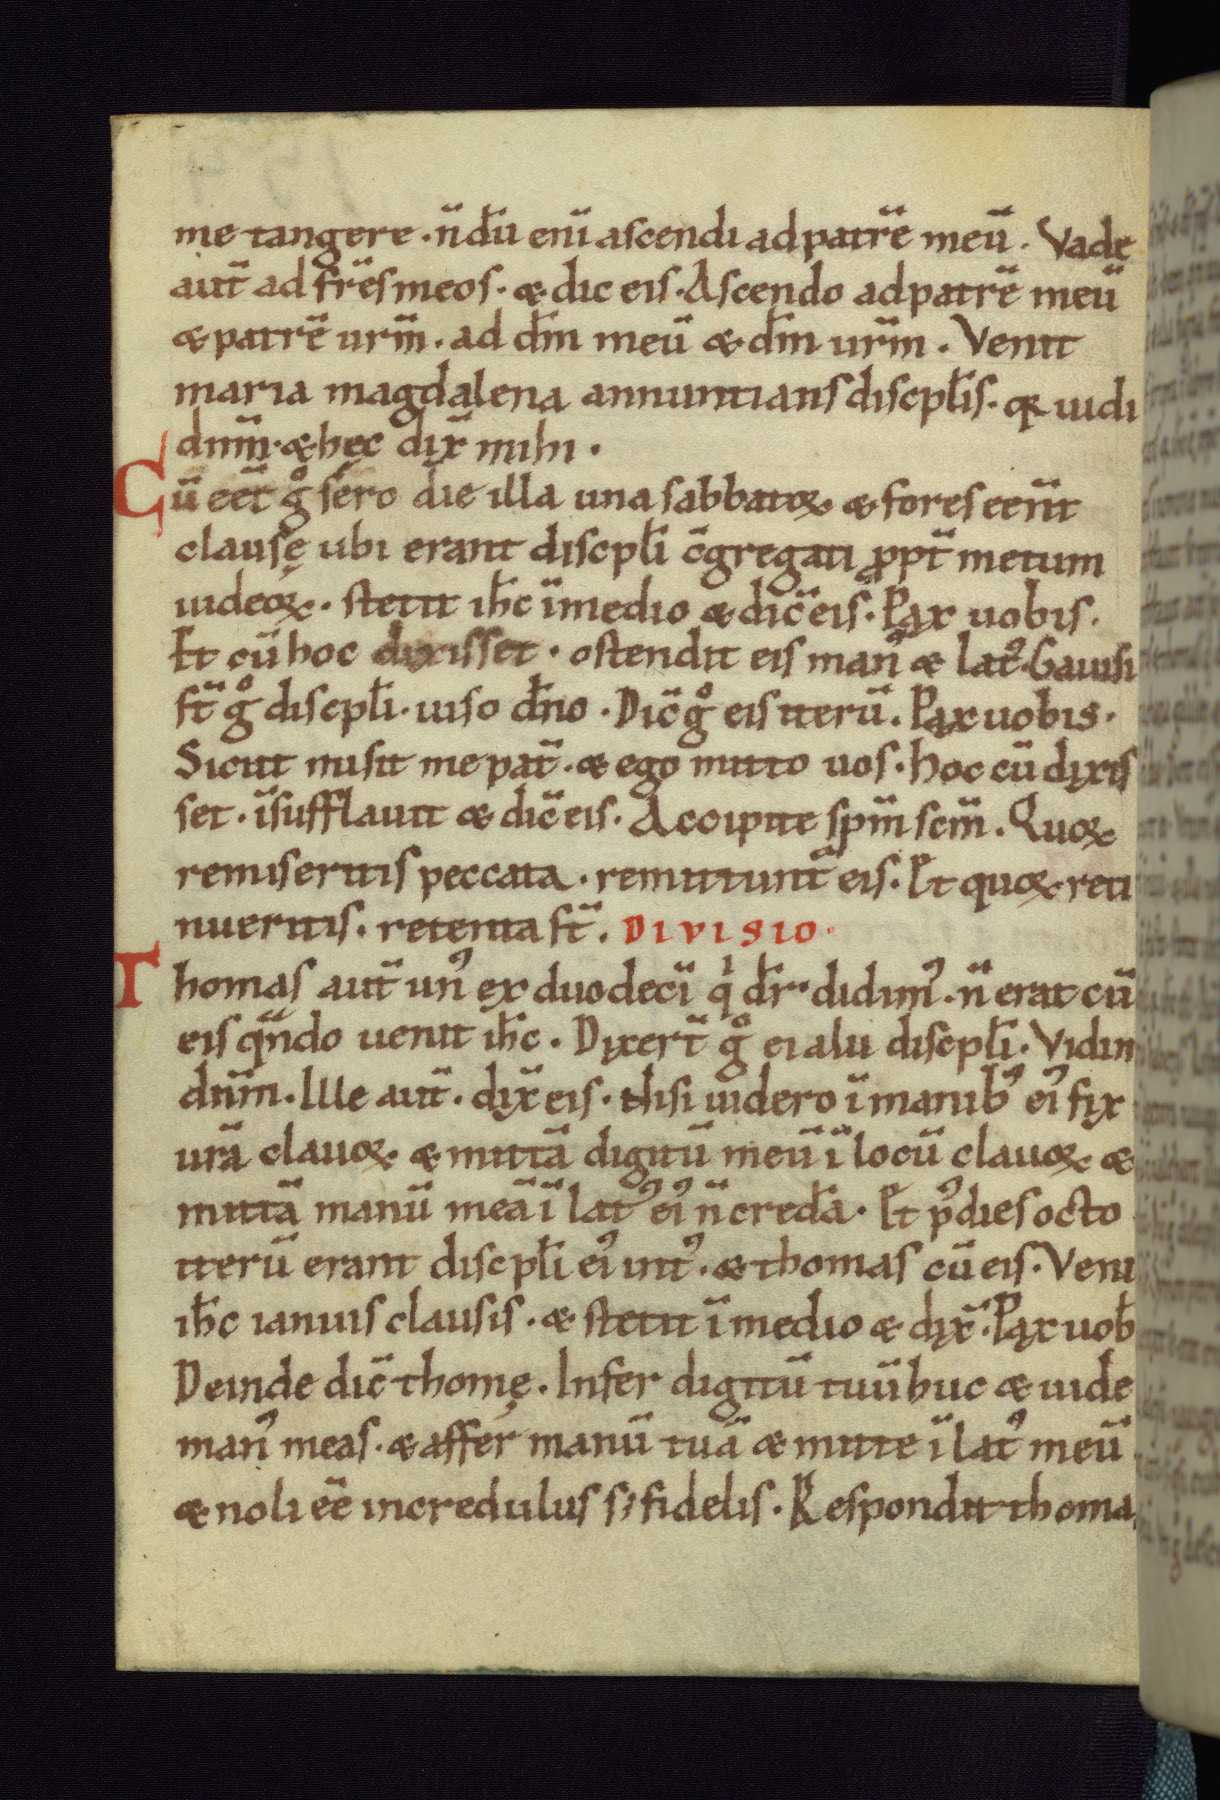 me tangere · n̄ dū enī ascendi ad patrē meū . Vade
aut̄ ad fr̄es meos · & dic eis · Ascendo ad patrē meū
& patrē ur̄m · ad dm̄ meū & dm̄ ur̄m . Venit
maria magdalena annuntians discipl̄is · qꝛ uidi
dnm̄ · & hęc dix̄ mihi ·
Cū eēt g̊ sero die illa una sabbatoꝝ · & fores eēnt
clausę ubi erant discpl̄i c̄gregati ꝓpt̄ metum
iudeoꝝ · stetit ih̄c ī medio & dic̄ eis · Pax uobis .
Et cū hoc dixisset · ostendit eis man᾽ & lat᾽ · Gauisi
st̄ g̊ discpl̄i · uiso dn̄o · Dic̄ g̊ eis iterū . Pax uobis ·
Sicut misit me pat̄ · & ego mitto uos · hoc cū dixis
set · īsufflauit & dic̄ eis · Accipite spm̄ scm̄ . Quoꝝ
remiseritis peccata · remittunt᾽ eis · Et quoꝝ reti
nueritis · retenta st̄ . DIVISIO ·
Thomas aut̄ un᾽ ex duodecī qͥ dr̄ · didim᾽ · n̄ erat cū
eis qn̄do uenit ih̄c . Dixert̄ g̊ ei alii discpl̄i · Vidim
dnm̄ · Ille aut̄ · dix̄ eis · Nisi uidero ī manib᾽ ei᾽ fix
urā clauoꝝ · & mittā digitū meū ī locū clauoꝝ · &
mittā manū meā ī lat᾽ ei᾽ n̄ credā · Et p᾽ dies octo
iterū erant discpl̄i ei᾽ int᾽ · & thomas cū eis · Veni
ih̄c ianuis clausis · & stetit ī medio & dix̄ · Pax uob̄
Deinde dic̄ thomę . Infer digitū tuū huc & uide
man᾽ meas · & affer manū tuā & mitte ī lat᾽ meū
& noli eē incredulus s; fidelis · Respondit thoma